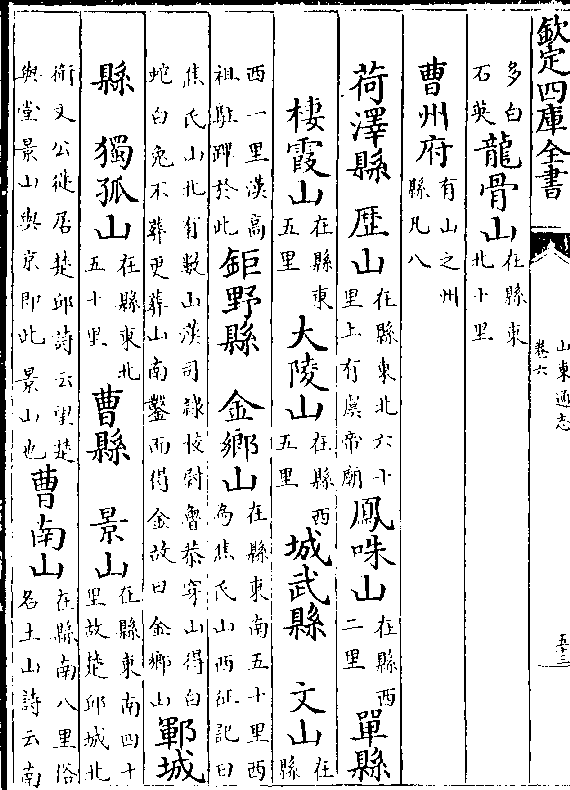 欽定四庫全書
山東通志
卷六
五十三
多白石英龍骨山在縣東北十里
曹州府有山之州縣凡八
荷澤縣 歴山在縣東北六十里上有虞帝廟鳳咮山在縣西二里單縣
棲霞山在縣東五里大陵山在縣西五里城武縣 文山在縣
西一里漢高祖駐蹕於此鉅野縣 金鄉山在縣東南五十里西為焦氏山西征記曰
焦氏山北有數山漢司隸校尉魯恭穿山得白蛇白兔不葬更葬山南鑿而得金故曰金鄉山鄆城
縣 獨孤山在縣東北五十里曹縣 景山在縣東南四十里故楚邱城北
衛文公徙居楚邱詩云望楚與堂景山與京即此景山也曹南山在縣南八里俗名土山詩云南